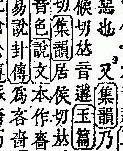 惡也又集韻乃
候切𠀤音遘玉篇
切集韻居候切𠀤
音色說文本作嗇
易說卦傳爲吝嗇